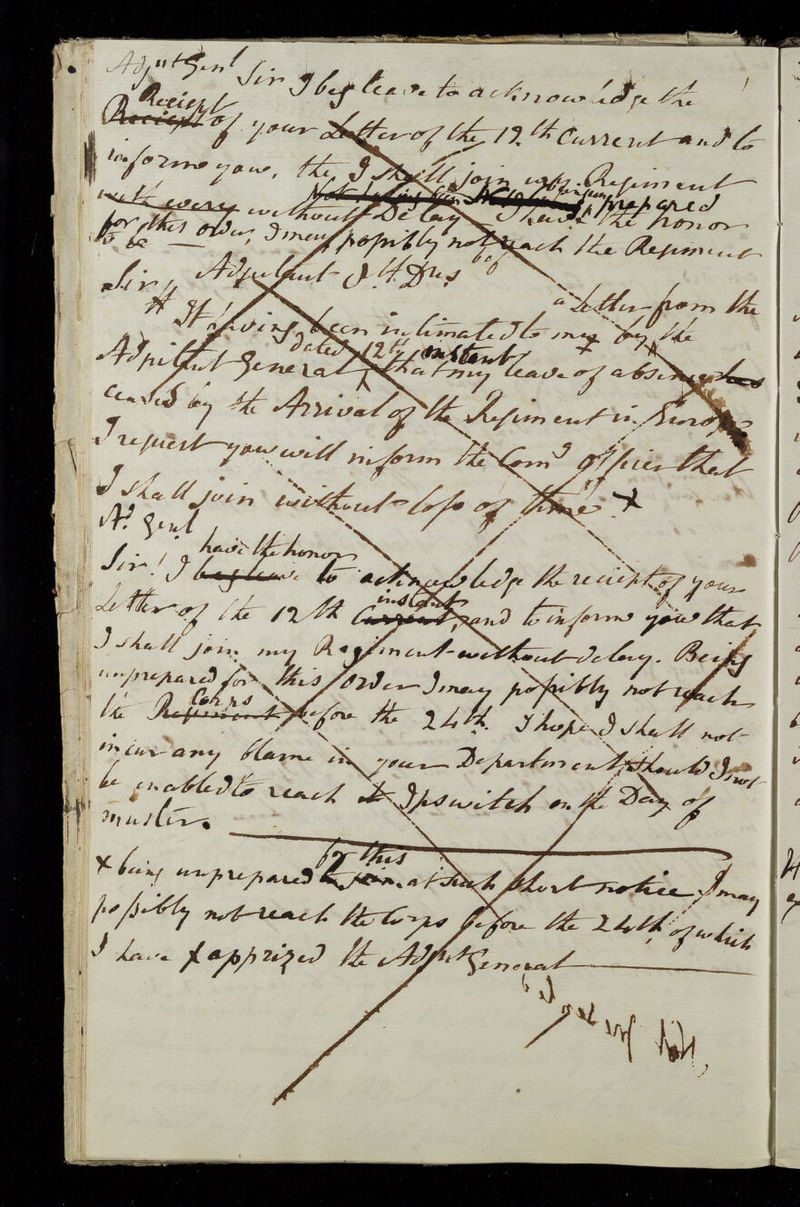 Adjut Genl Sir I beg leave to acknowledge the
Reciept
Reciept of your Letter of the 12th Current and to
inform you, the I shall join my Regiment
Not being
being unprepared
with every without Delay I have the honor
for this order, I may possibly not reach the Regiment
to be
Sir, Adjutant J. H. Drs bef
a Letter from the
It having been intimated to me by the
dated 12th instant
Adjutant General that my leave of absence has
ceased by the Arrival of the Regiment in Europe
I request you will inform the Comg Officer that
I shall join without loss of time x
At. Genl
have the honor
Sir! I beg leave to acknowledge the reciept of your
instant
Letter of the 12th Current, and to inform you that
I shall join my Regiment without delay. Being
unprepared for this order I may possibly not reach
Corps
the Regiment before the 24th. I hope I shall not
incur any blame in your Department should I not
be enabled to reach Ipswitch on the Day of
muster.
for this
x being unprepared to join at such short notice I may
possibly not reach the Corps before the 24th, of which
I have apprized the Adjut General